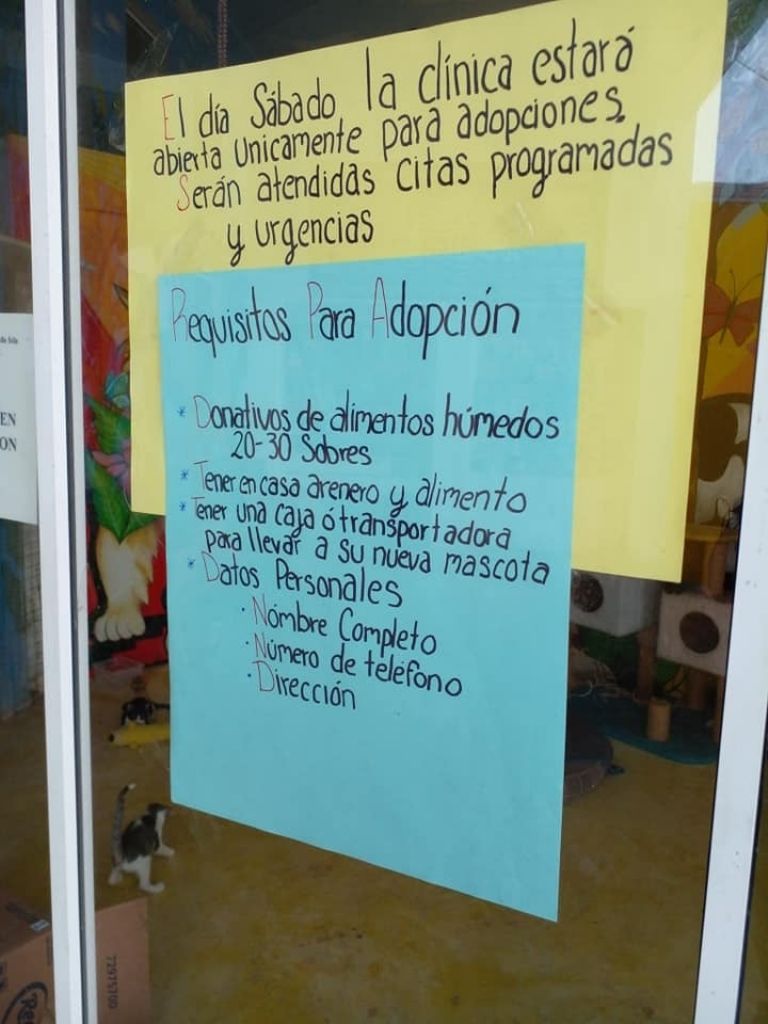 El día Sábado la clínica estará
abierta Unicamente para adopciones.
Serán atendidas citas programadas
y urgencias
Requisitos Para Adopción
* Donativos de alimentos húmedos
20-30 Sobres
* Tener en casa arenero y alimento
* Tener una caja ó transportadora
para llevar a su nueva mascota
* Datos Personales
· Nombre Completo
· Número de teléfono
· Dirección
EN
ON
72975700